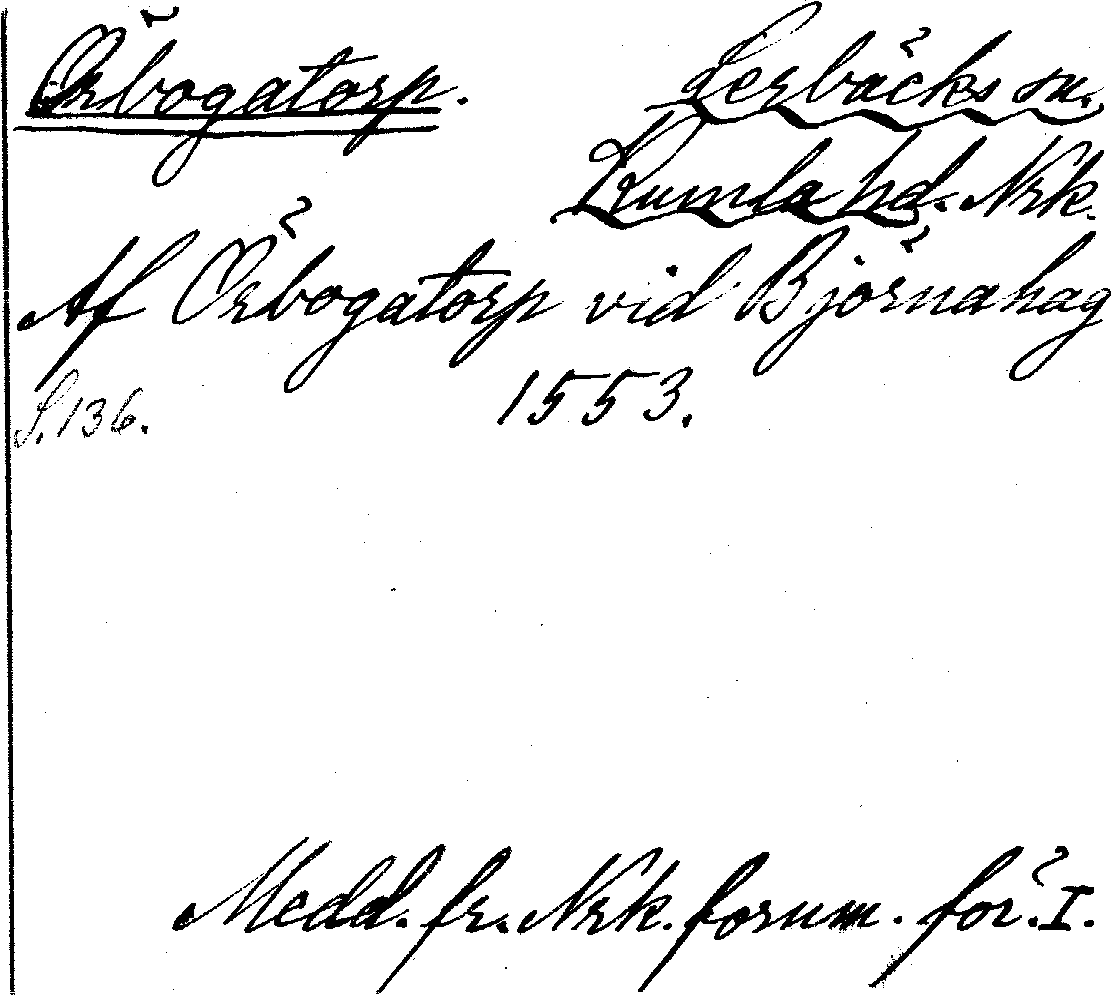 Örbogatorp. Lerbäcks sn.,
Kumla hd. Nrk.
Af Örbogatorp vid Björnahag
1553.
S. 136.
Medd. fr. Nrk. fornm. för. I.